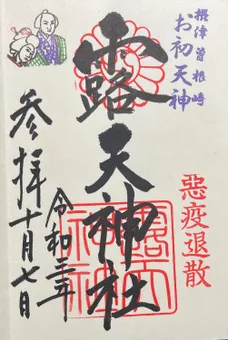 摂津曽根崎
お初天神
悪疫退散
露天神社
令和三年
参拝十月七日